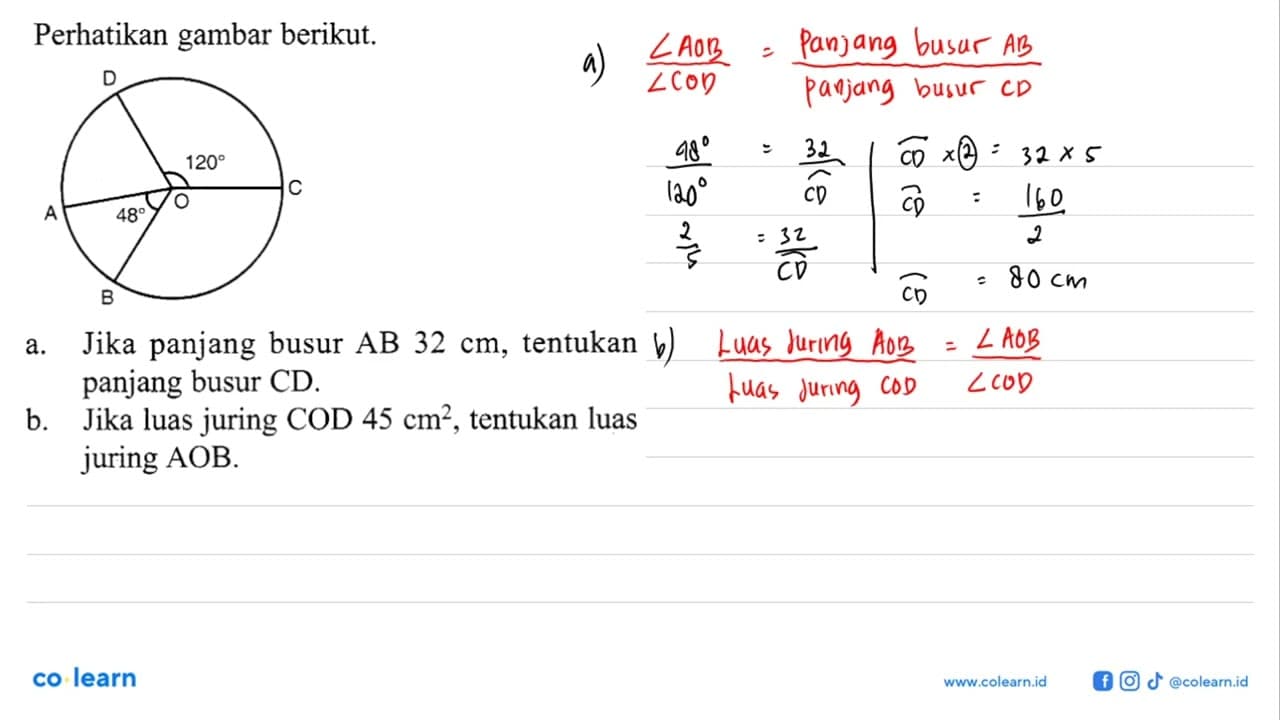 Perhatikan gambar berikut.
D
120°
C
O
A
48°
B
a. Jika panjang busur AB 32 cm, tentukan
panjang busur CD.
b. Jika luas juring COD 45 cm², tentukan luas
juring AOB.
a) ∠AOB / ∠COD = Panjang busur AB / panjang busur CD
48° / 120° = 32 / CD
2 / 5 = 32 / CD
CD × 2 = 32 × 5
CD = 160 / 2
CD = 80 cm
b) Luas Juring AOB / Luas Juring COD = ∠AOB / ∠COD
co learn
www.colearn.id
@colearn.id